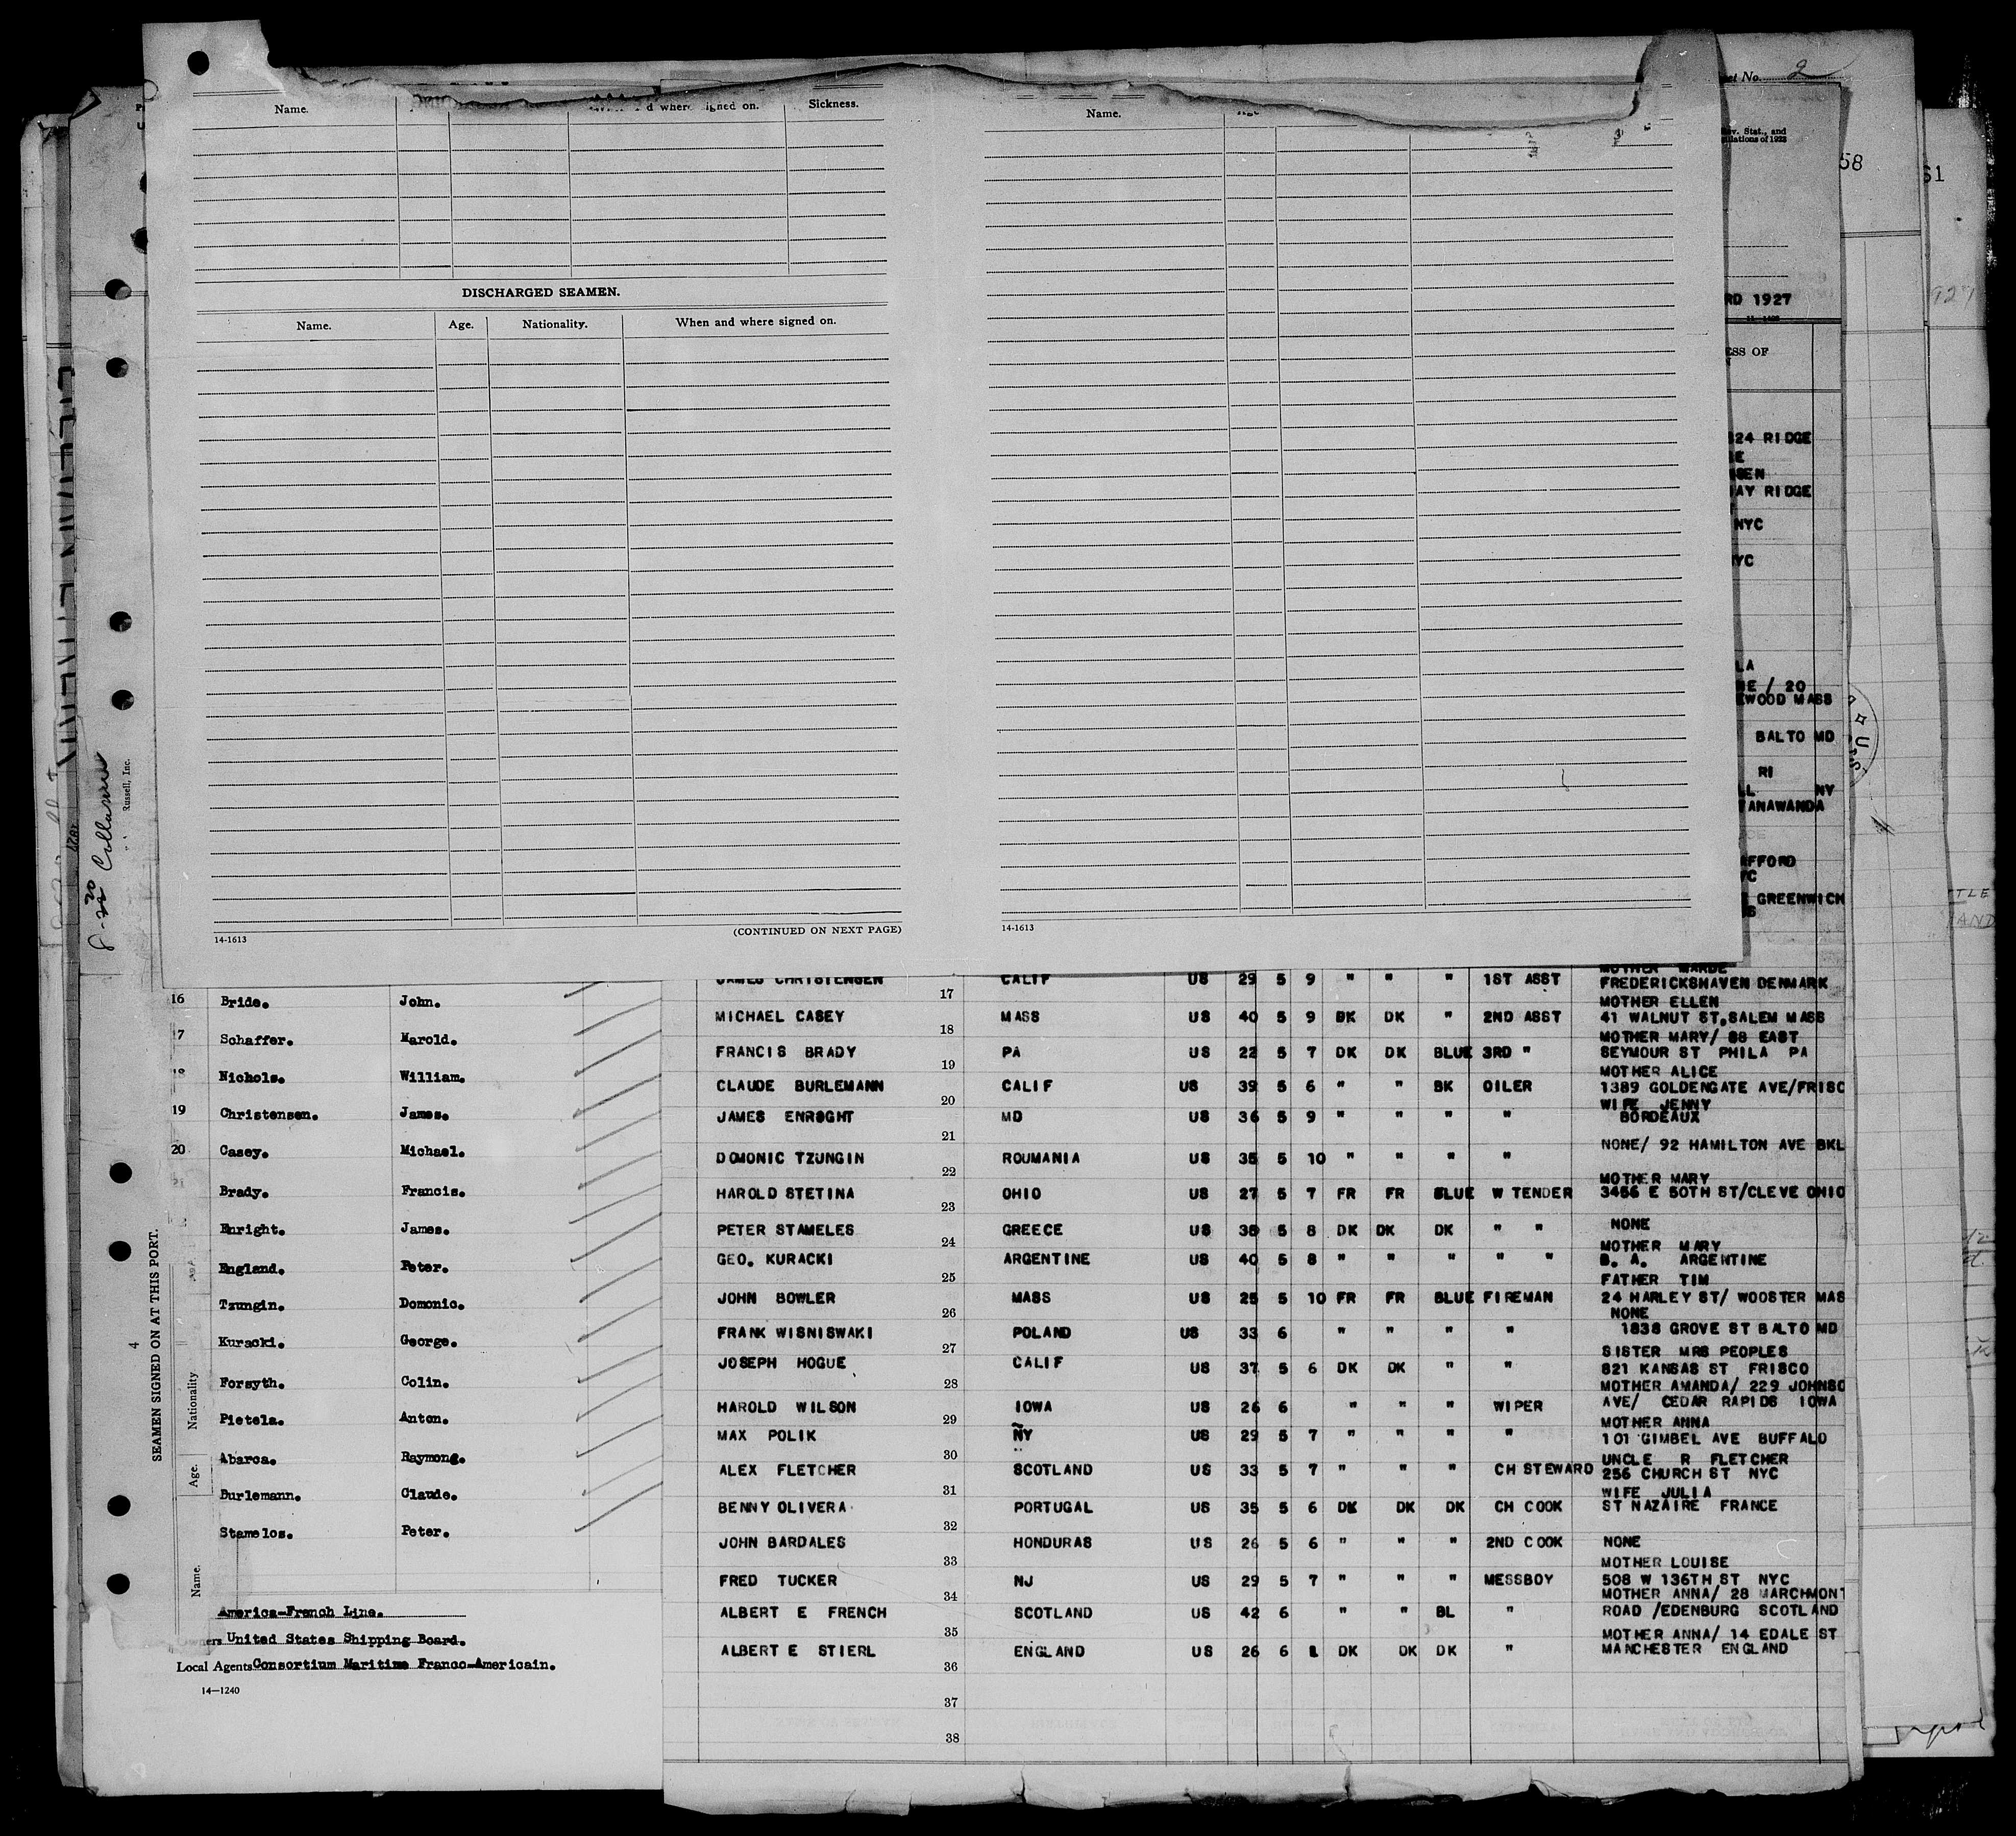 Name.
d where signed on.
Sickness.
DISCHARGED SEAMEN.
Name.
Age.
Nationality.
When and where signed on.
14-1613
(CONTINUED ON NEXT PAGE)
Name.
14-1613
No. 2
Rev. Stat., and
58
RD 1927
ESS OF
324 RIDGE
SEN
AY RIDGE
NYC
YC
LA
NE / 20
EWOOD MASS
BALTO MD
RI
LL NY
TANAWANDA
FFORD
GREENWICH
Russell, Inc.
4
SEAMEN SIGNED ON AT THIS PORT.
Nationality
Age.
Name.
16 Bride. John.
17 Schaffer. Harold.
18 Nichols. William.
19 Christensen. James.
20 Casey. Michael.
21 Brady. Francis.
Enright. James.
England. Peter.
Tzungin. Domonic.
Kuracki. George.
Forsyth. Colin.
Pietela. Anton.
Abarca. Raymong.
Burlemann. Claude.
Stamelos. Peter.
America-French Line.
Owners United States Shipping Board.
Local Agents Consortium Maritime Franco-Americain.
14—1240
MOTHER MARDE
JAMES CHRISTENSEN CALIF US 29 5 9 " " " 1ST ASST FREDERICKSHAVEN DENMARK
17
MOTHER ELLEN
MICHAEL CASEY MASS US 40 5 9 DK DK " 2ND ASST 41 WALNUT ST,SALEM MASS
18
MOTHER MARY/ 88 EAST
FRANCIS BRADY PA US 22 5 7 DK DK BLUE 3RD " SEYMOUR ST PHILA PA
19
MOTHER ALICE
CLAUDE BURLEMANN CALIF US 39 5 6 " " BK OILER 1389 GOLDENGATE AVE/FRISC
20
WIFE JENNY
JAMES ENRSGHT MD US 36 5 9 " " " " BORDEAUX
21
NONE/ 92 HAMILTON AVE BKL
DOMONIC TZUNGIN ROUMANIA US 35 5 10 " " " "
22
MOTHER MARY
HAROLD STETINA OHIO US 27 5 7 FR FR BLUE W TENDER 3456 E 50TH ST/CLEVE OHIO
23
NONE
PETER STAMELES GREECE US 35 5 8 DK DK DK " "
24
MOTHER MARY
GEO. KURACKI ARGENTINE US 40 5 8 " " " " " B. A. ARGENTINE
25
FATHER TIM
JOHN BOWLER MASS US 25 5 10 FR FR BLUE FIREMAN 24 HARLEY ST/ WOOSTER MAS
26
NONE
FRANK WISNISWAKI POLAND US 33 6 " " " " 1838 GROVE ST BALTO MD
27
SISTER MRS PEOPLES
JOSEPH HOGUE CALIF US 37 5 6 DK DK " " 821 KANSAS ST FRISCO
28
MOTHER AMANDA/ 229 JOHNSO
HAROLD WILSON IOWA US 26 6 " " " WIPER AVE/ CEDAR RAPIDS IOWA
29
MOTHER ANNA
MAX POLIK NY US 29 5 7 " " " " 101 GIMBEL AVE BUFFALO
30
UNCLE R FLETCHER
ALEX FLETCHER SCOTLAND US 33 5 7 " " " CH STEWARD 256 CHURCH ST NYC
31
WIFE JULIA
BENNY OLIVERA PORTUGAL US 35 5 6 DK DK DK CH COOK ST NAZAIRE FRANCE
32
JOHN BARDALES HONDURAS US 26 5 6 " " " 2ND COOK NONE
33
MOTHER LOUISE
FRED TUCKER NJ US 29 5 7 " " " MESSBOY 508 W 136TH ST NYC
34
MOTHER ANNA/ 28 MARCHMONT
ALBERT E FRENCH SCOTLAND US 42 6 " " BL " ROAD /EDENBURG SCOTLAND
35
MOTHER ANNA/ 14 EDALE ST
ALBERT E STIERL ENGLAND US 26 6 1 DK DK DK " MANCHESTER ENGLAND
36
37
38